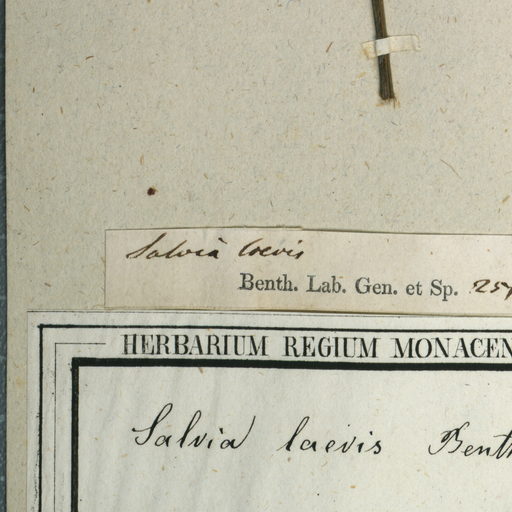 Salvia laevis
Benth. Lab. Gen. et Sp.
HERBARIUM REGIUM MONACEN
Salvia laevis Benth